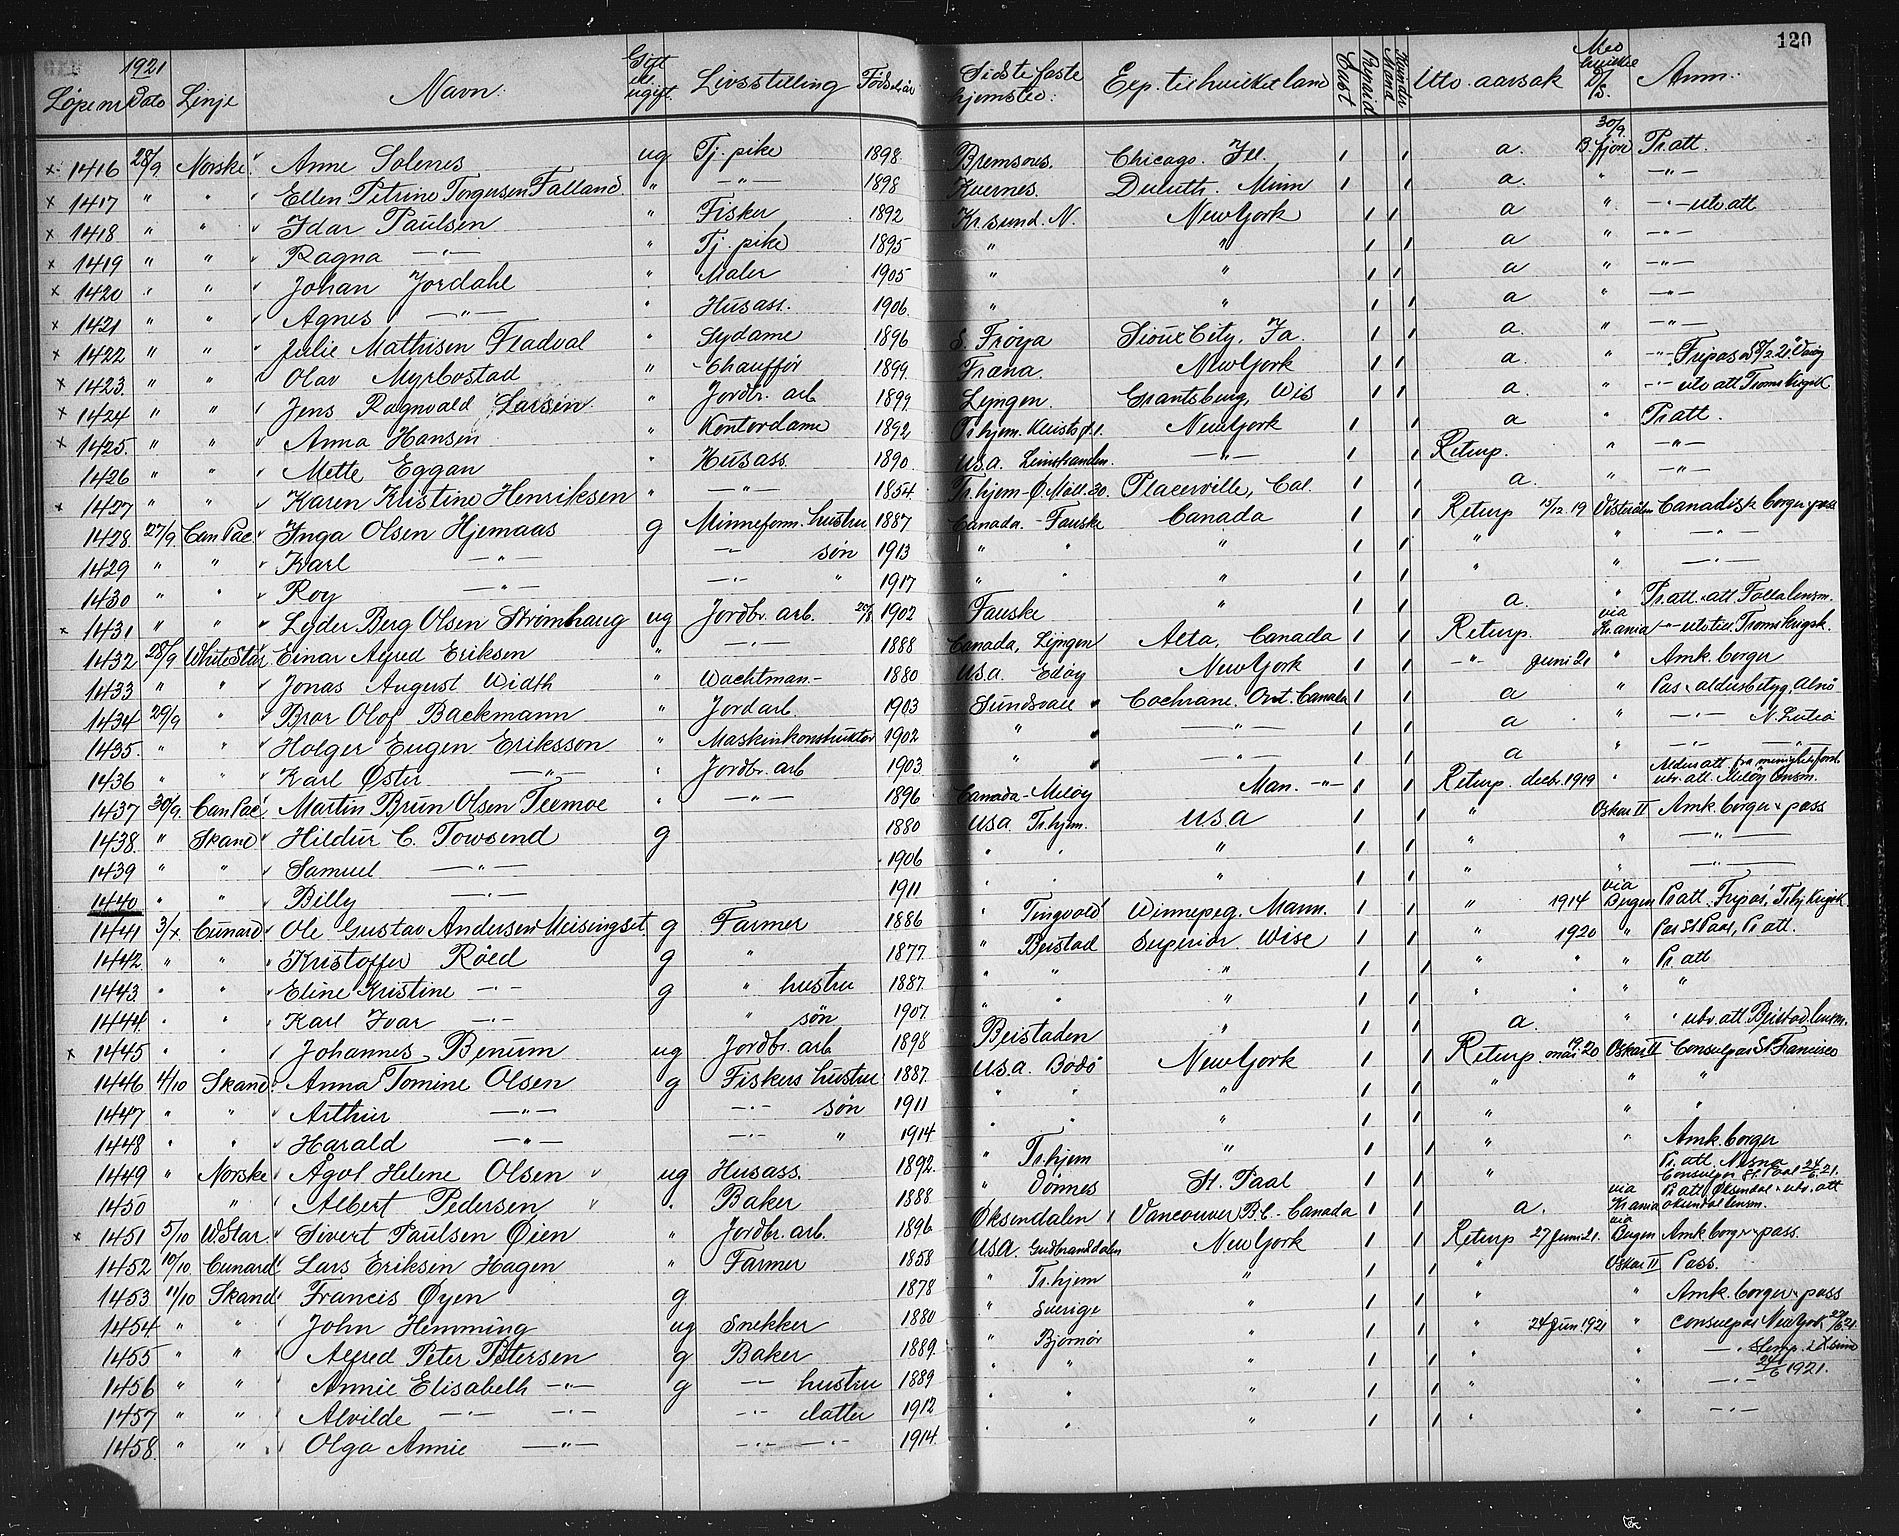 120
1921
Löpenr Dato Linje Navn: Gift el. ugift. Livsstilling Födselsår Sidste faste hjemsted: Exp. til hvilket land Mænd Kvinder Utv. aarsak Med hvilke D/S. Anm.
x 1416 28/9 Norske " Anne Solenes ug Tj. pike 1898 Bremsnes. Chicago. Ill. a. 30/9. B.fjord Pr.att.
x 1417 " " " Ellen Petrine Torgersen Falland " —"— 1898 Kvernes. Duluth. Minn a. " —"—
x 1418 " " " Idar Paulsen " Fisker 1892 Kr.sund. N. New York a " —"— utv. att
x 1419 " " " Ragna —"— " Tj. pike 1895 " " a " —"—
x 1420 " " " Johan Jordahl " Maler 1905 " " a " —"—
x 1421 " " " Agnes —"— " Husass. 1906 " " a " —"—
x 1422 " " " Julie Mathisen Fladval " Sydame 1896 S. Frøya Sioux City, Ia. a. " —"—
x 1423 " " " Olav Myrbostad " Chauffør 1899 Fræna. New York a. " —"— Fripas
x 1424 " " " Jens Ragnvald Larsen " Jordbr. arb 1899 Lyngen. Grantsburg, Wis a. " —"— utv att Troms Krigsk.
x 1425 " " " Anna Hansen " Kontordame 1892 Tr.hjem. New York a " Pr att.
1426 " " " Mette Eggan " Husass. 1890 USA. Leinstranden. —"— Returp. " —"—
x 1427 " " " Karen Kristine Henriksen " —"— 1854 Tr.hjem - Ø Möll. 30. Placerville, Cal. a. " —"—
1428 27/9 Can Pac " Inga Olsen Hjemaas g Mineform. hustru 1887 Canada. - Fauske Canada Returp 15/12 19 Vesterålen Canadisk borger pass
1429 " " " Karl —"— —"— søn 1913 " " " " " —"—
1430 " " " Roy —"— —"— " 1917 " " " " " —"—
x 1431 " " " Lyder Berg Olsen Strømhaug ug Jordbr. arb. 20/8 1902 Fauske " a. " Pr. att. att Folla lensm.
1432 28/9 White Star Einar Alfred Eriksen " —"— 1888 Canada, Lyngen Alta, Canada Returp. via Kr.ania —"— utv. till. Troms Krigsk.
1433 " " " Jonas August Width " Wachtman - 1880 USA. Edöy New York —"— Juni 21 " Amk. borger
1434 29/9 " " Bror Olof Backmann " Jord arb. 1903 Sundsvall " Cochrane. Ont. Canada a " Pas & aldersbetyg. Alnö
1435 " " " Holger Eugen Eriksson " Maskinkonstruktör 1902 " " —"— a " —"— N. Luleå
1436 " " " Karl Öster —"— " Jordbr. arb 1903 " " —"— a " —"— —"—
1437 30/9 Can Pac " Martin Brun Olsen Teemoe " —"— 1896 Canada - Meløy Man. —"— Returp. decbr. 1919 " utv. att. Meløy lensm.
1438 " Skand " Hildur C. Towsend g 1880 USA. Tr.hjem. USA " Oskar II Amk. borger & pass
1439 " " " Samuel —"— 1906 " " " " —"—
1440 " " " Billy —"— 1911 " " " " —"—
1441 3/x Cunard " Ole Gustav Andersen Meisingset g Farmer 1886 " Tingvold Winnepeg. Mann. " 1914 via Bergen Pr att. Fripas, Trhj Krigsk.
1442 " " " Kristoffer Røed g " 1877 " Beistad Superior Wise " 1920 " Pas St Paal, Pr att.
1443 " " " Eline Kristine —"— g " hustru 1887 " " " " " " Pr. att
1444 " " " Karl Ivar —"— " søn 1907 " " " " " " "
x 1445 " " " Johannes Benum ug Jordbr. arb 1898 Beistaden " a. " " utv. att. Beistad lensm.
1446 4/10 Skand. " Anna Tomine Olsen g Fiskers hustru 1887 USA. Bodö New York Returp. mai 19.20 Oskar II Consulpas St Francisco
1447 " " " Arthur —"— —"— søn 1911 " " " " " "
1448 " " " Harald —"— —"— " 1914 " " " " " "
1449 " Norske " Ågot Helene Olsen " ug Husass. 1892 " Tr.hjem " " " Amk. borger
1450 " " Albert Pedersen " " Baker 1888 " Dønnes St. Paal " Pr. att. Nesna Consulpas St. Paal 24/6 21.
x 1451 5/10 W.Star. " Sivert Paulsen Øien " Jordbr. arb. 1896 Øksendalen Vancouver B.C. - Canada a. via Kr.ania Pr att Øksendal & utv. att Øksendal lensm.
1452 10/10 Cunard " Lars Eriksen Hagen " Farmer 1858 USA. Gudbranddalen New York Returp 27 Juni 21. via Bergen Amk borger & pass.
1453 11/10 Skand " Francis Øyen g 1878 " Tr.hjem " " Oskar II Pass.
1454 " " " John Hemming ug Snekker 1880 " Sverige " " " Amk. borger & pass
1455 " " " Alfred Peter Petersen g Baker 1889 " Bjørnør " " 24 Jun 1921 " Consulpas New York
1456 " " " Annie Elisabeth —"— g —"— hustru 1889 " " " " " —"— Stemp. i Kr.sund 24/6 1921.
1457 " " " Alvilde —"— —"— —"— datter 1912 " " " " —"—
1458 " " " Olga Annie —"— —"— —"— 1914 " " " " " —"—